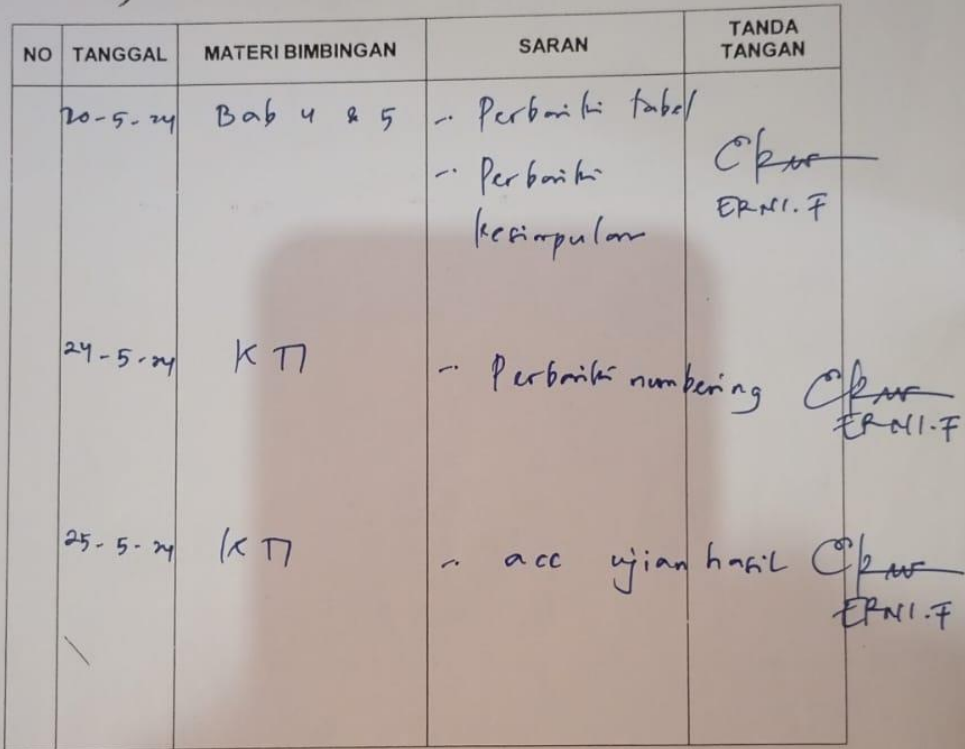 NO TANGGAL MATERI BIMBINGAN SARAN TANDA TANGAN
20-5-24 Bab 4 & 5 - Perbaiki tabel
- Perbaiki
kesimpulan
ERNI.F
24-5-24 KTI - Perbaiki numbering
ERNI.F
25-5-24 KTI - acc ujian hasil
ERNI.F